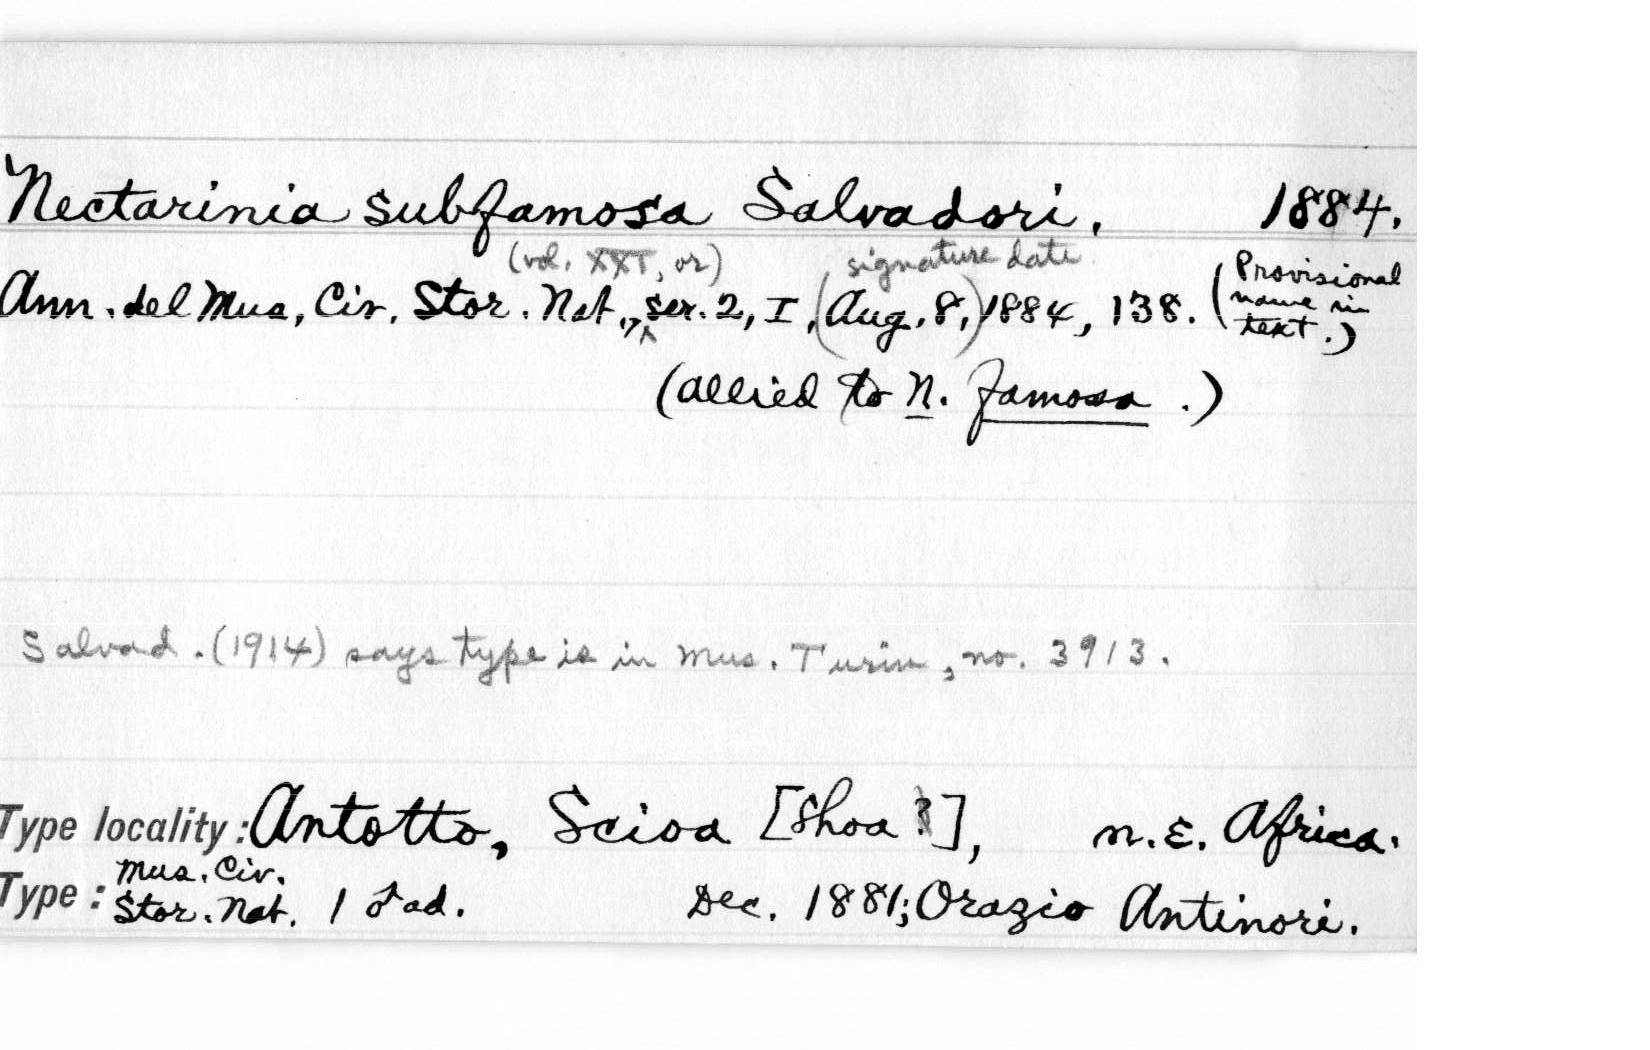 Nectarinia subfamosa Salvadori. 1884.
(vol. XXI, or) signature date
Ann. del Mus. Civ. Stor. Nat., ser. 2, I, (Aug. 8,) 1884, 138. (Provisional name in text.)
(allied to N. famosa.)
Salvad. (1914) says type is in Mus. Turin, no. 3913.
Type locality: Antotto, Scioa [Shoa ?], n.E. Africa.
Type: Mus. Civ. Stor. Nat. 1 ♂ ad. Dec. 1881; Orazio Antinori.